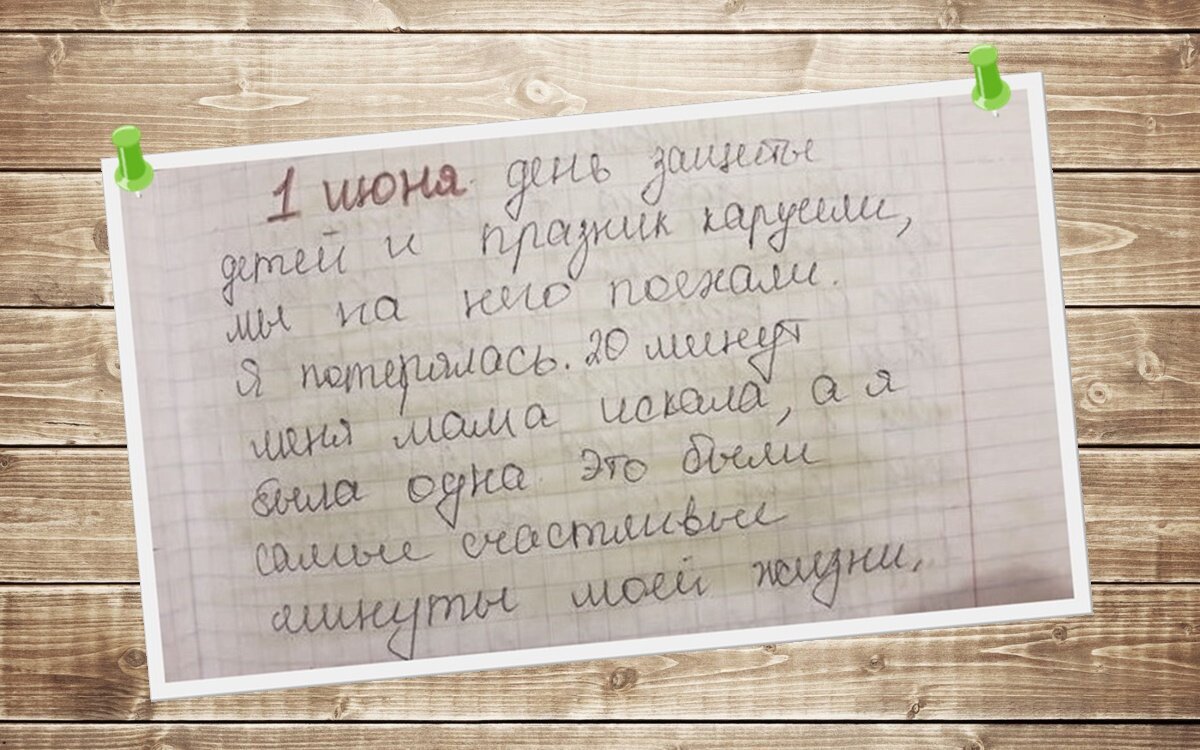 1 июня день защиты
детей и празник карусели,
мы на него поехали.
Я потерялась. 20 минут
меня мама искала, а я
была одна Это были
самые счастливые
минуты моей жизни.